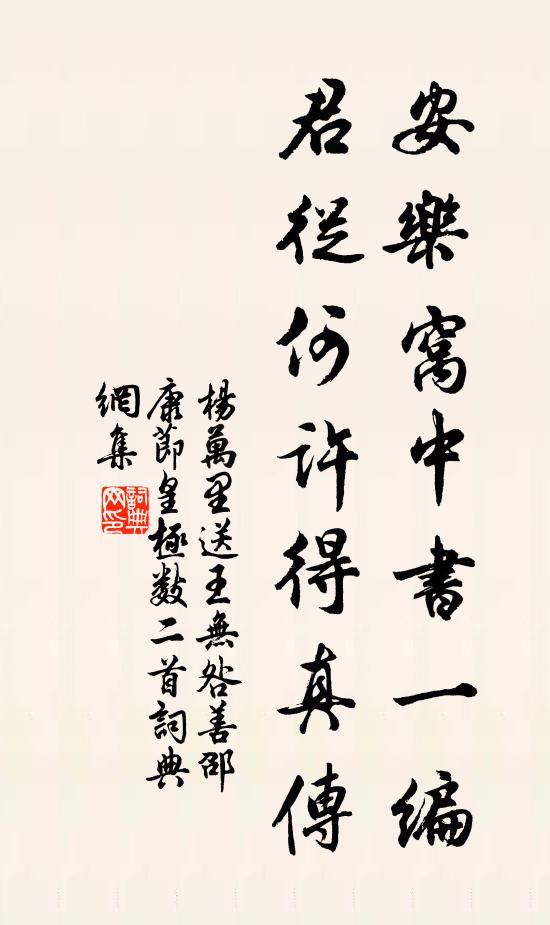 安樂窩中書一編
君從何許得真傳
楊萬里送王無咎善邵
康節皇極数二首詞典
網集
詞典
网印